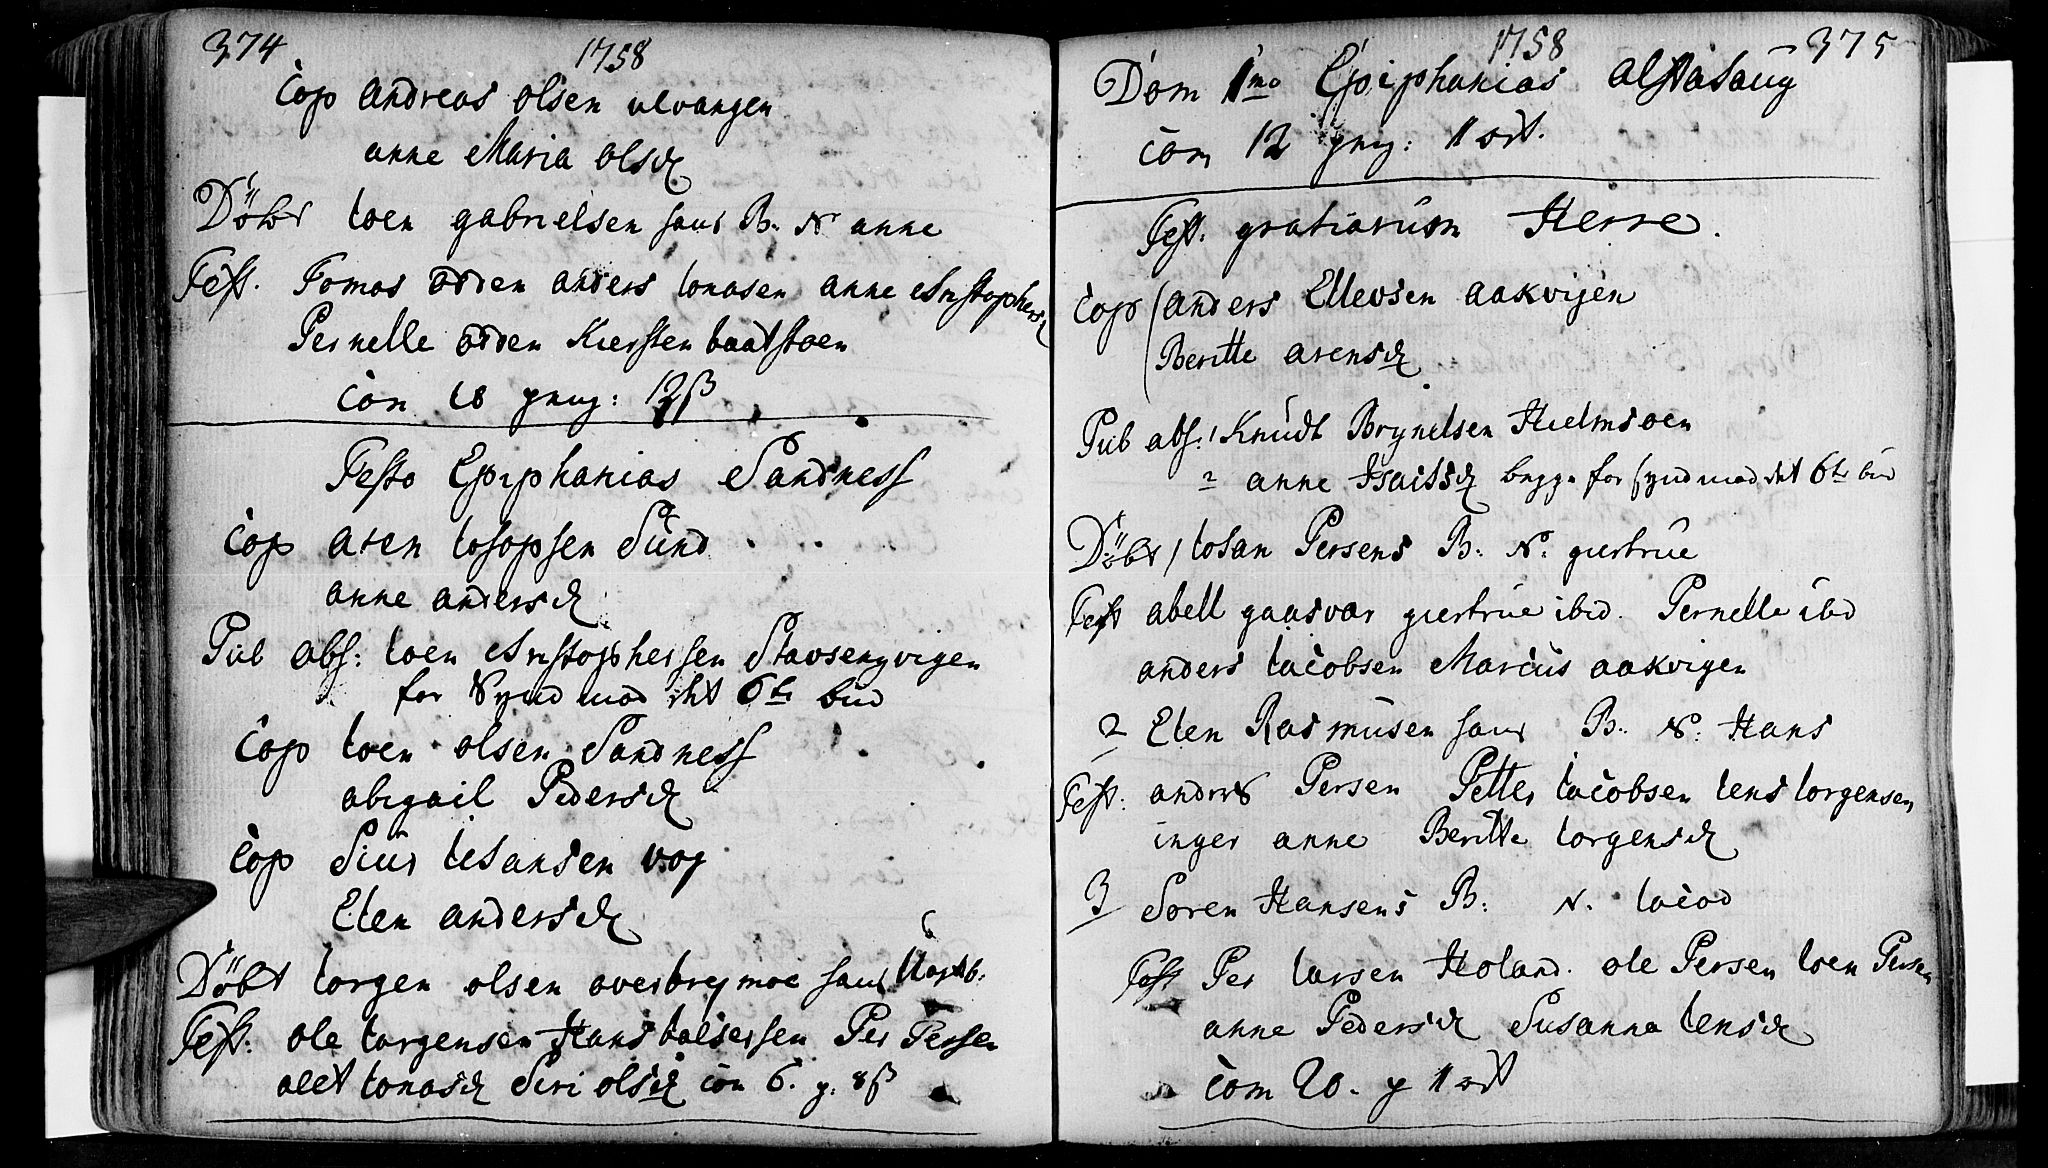 374 1758
Cop andreas olsen ulvangen
anne Maria olsd
Döbt Joen gabrielsen hans B. N anne
Test. Tomas odden anders Jonasen anne Christophersd
Pernelle odden Kiersten baatstoen
Com 18 pnng: 12 ß
Festo Epiphanias Sandness
Cop aren Josopsen Sund
anne andersd
Pub abs: Joen Christophersen Stavsengvigen
for Synd mod det 6te bud
Cop Joen olsen Sandness
abigail Pedersd
Cop Siur Johansen vog
Elen andersd
Döbt Jorgen olsen overbrejmoe hans
Test: ole Jorgensen Hans balsersen Per Persen
alet Jonasd Siri olsd com 6. p. 8 ß
1758 375
Dom 1mo Epiphanias alstahaug
Com 12 pnng: 1 ort.
Fest. gratiarum Herre.
Cop anders Ellevsen aakvigen
Beritte arensd
Pub abs: 1 Knudt Brynelsen Hielmsoen
2 anne Isaisd begge for synd mod det 6te bud
Döbt 1 Johan Persens B: N: giertrue
Test abell gaasvar giertrue ibid. Pernelle ibd
anders Jacobsen Marcus aakvigen
2 Elen Rasmusen hans B: N: Hans
Test: anders Persen Petter Jacobsen Jens Jorgensen
inger anne Beritte Jorgensd
3 Soren Hansens B: N. Jacob
Test Per Larsen Holand. ole Persen Joen Persen
anne Pedersd Susanna Jensd
Com 20. p 1 ort